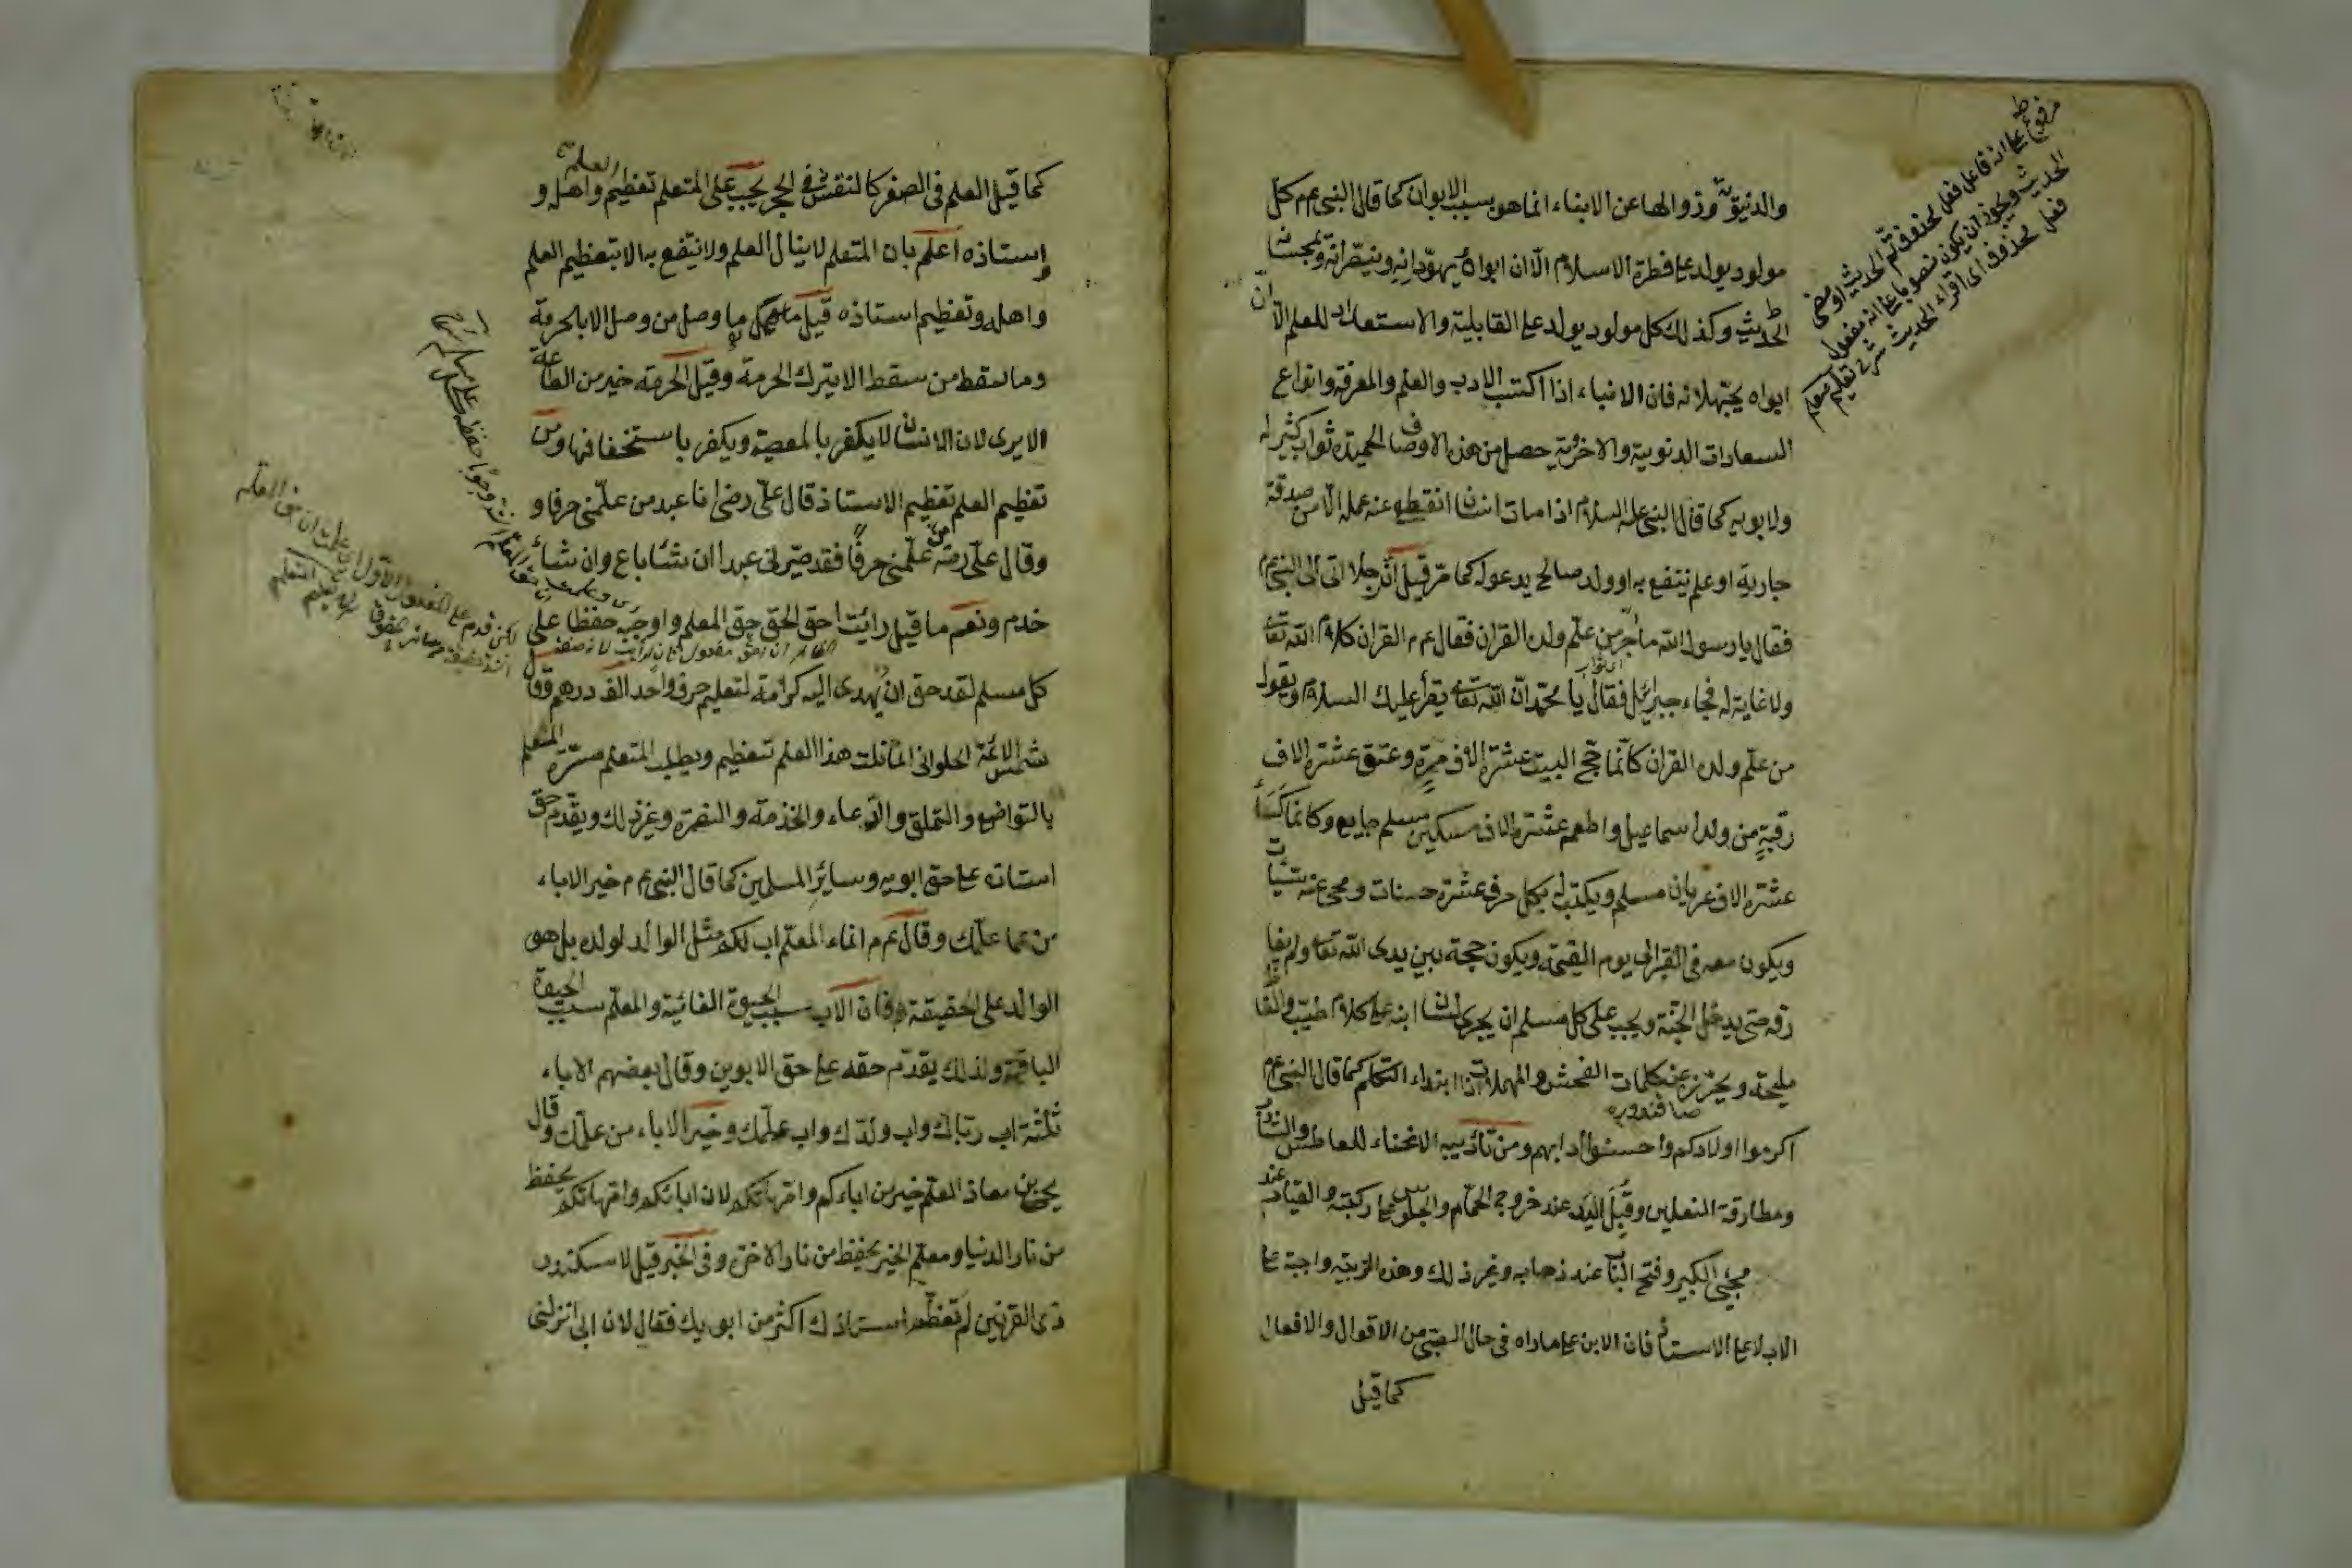 والدنيوية وزوالها عن الابناء انما هو بسبب الابوان كما قال النبى عم كل
مولود يولد على فطرة الاسلام الا ان ابواه يهودانه وينصرانه ويمجسانه
الحديث وكذلك كل مولود يولد على القابلية والاستعداد للمعلم الا ان
ابواه يجهلانه فان الابناء اذا اكتسب الادب والعلم والمعرفة وانواع
السعادات الدنيوية والاخروية حصل من هذه الاوصاف الحميدة ثواب كثير له
ولابويه كما قال النبى عليه السلام اذا مات انسان انقطع عنه عمله الا من صدقة
جارية او علم ينتفع به او ولد صالح يدعو له كما مر قيل ان رجلا اتى الى النبى عم
فقال يا رسول الله ما اجر من علم ولده القران فقال عم القران كلام الله تعا
ولا غاية له فجاء جبرائيل فقال يا محمد ان الله تعا يقرأ عليك السلام ويقول
من علم ولده القران كانما حج البيت عشرة الاف مرة وعتق عشرة الاف
رقبة من ولد اسماعيل واطعم عشرة الاف مسكين مسلم جايع وكانما كسا
عشرة الاف عريان مسلم ويكتب له بكل حرف عشرة حسنات ومحى عنه سيئات
ويكون معه فى القبر الى يوم القيمة ويكون حجة بين يدى الله تعا ولم يفا
رقه حتى يدخل الجنة ويجب على كل مسلم ان يجرى لسان ابنه على كلام طيب والفاظ
مليحة ويحترز عن كلمات الفحش والمهملات اذا ابتداء التكلم كما قال النبى عم
اكرموا اولادكم واحسنوا ادابهم ومن تأديبه الانحناء للعاطس والشا
ومطارقة النعلين وقبل اليد عند خروج الحمام والجلوس على ركبته والقيام عند
مجيئ الكبير وفتح الباب عند ذهابه وغير ذلك وهذه التربية واجبة على
الاب لا على الاستاذ فان الابن على ما راه فى حال الصبى من الاقوال والافعال
كما قيل
مرفوع على انه فاعل فعل محذوف تم الحديث او مضى
الحديث ويجوز ان يكون منصوبا على انه مفعول
فعل محذوف اى اقراء الحديث شرح تعليم
كما قيل العلم فى الصغر كالنقش فى الحجر يجب على المتعلم تعظيم العلم واهله و
استاذه اعلم بان المتعلم لا ينال العلم ولا ينتفع به الا بتعظيم العلم
واهله وتعظيم استاذه قيل ما وصل من وصل الا بالحرمة
وما سقط من سقط الا بترك الحرمة وقيل الحرمة خير من الطاعة
الا يرى لان الانسان لا يكفر بالمعصية ويكفر باستخفافها ومن
تعظيم العلم تعظيم الاستاذ قال على رضى انا عبد من علمنى حرفا و
وقال على رضه من علمنى حرفا فقد صيرنى عبدا ان شاء باع وان شاء
خدم ونعم ما قيل رأيت احق الحق حق المعلم واوجبه حفظا على
كل مسلم لقد حق ان يهدى اليه كرامة لتعليم حرف واحد الف درهم وقال
شمس الائمة الحلوانى انما نلت هذا العلم بتعظيم ويطلب المتعلم مسرة المعلم
بالتواضع والتملق والدعاء والخدمة والنصرة وغير ذلك ويقدم حق
استاذه على حق ابويه وسائر المسلمين كما قال النبى عم خير الاباء
من علمك وقال عم انما المعلم اب لكم مثل الوالد لولده بل هو
الوالد على الحقيقة فان الاب سبب الحيوة الفانية والمعلم سبب الحيوة
الباقية ولذلك يقدم حقه على حق الابوين وقال بعضهم الاباء
ثلثة اب رباك واب ولدك واب علمك وخير الاباء من علمك وقال
يحيى بن معاذ العلم خير من اباءكم وامهاتكم لان ابائكم وامهاتكم يحفظ
من نار الدنيا ومعلم الخير يحفظ من نار الاخرة وفى الخبر قيل لاسكندر
ذى القرنين لم تعظم استاذك اكثر من ابويك فقال لان ابى انزلنى